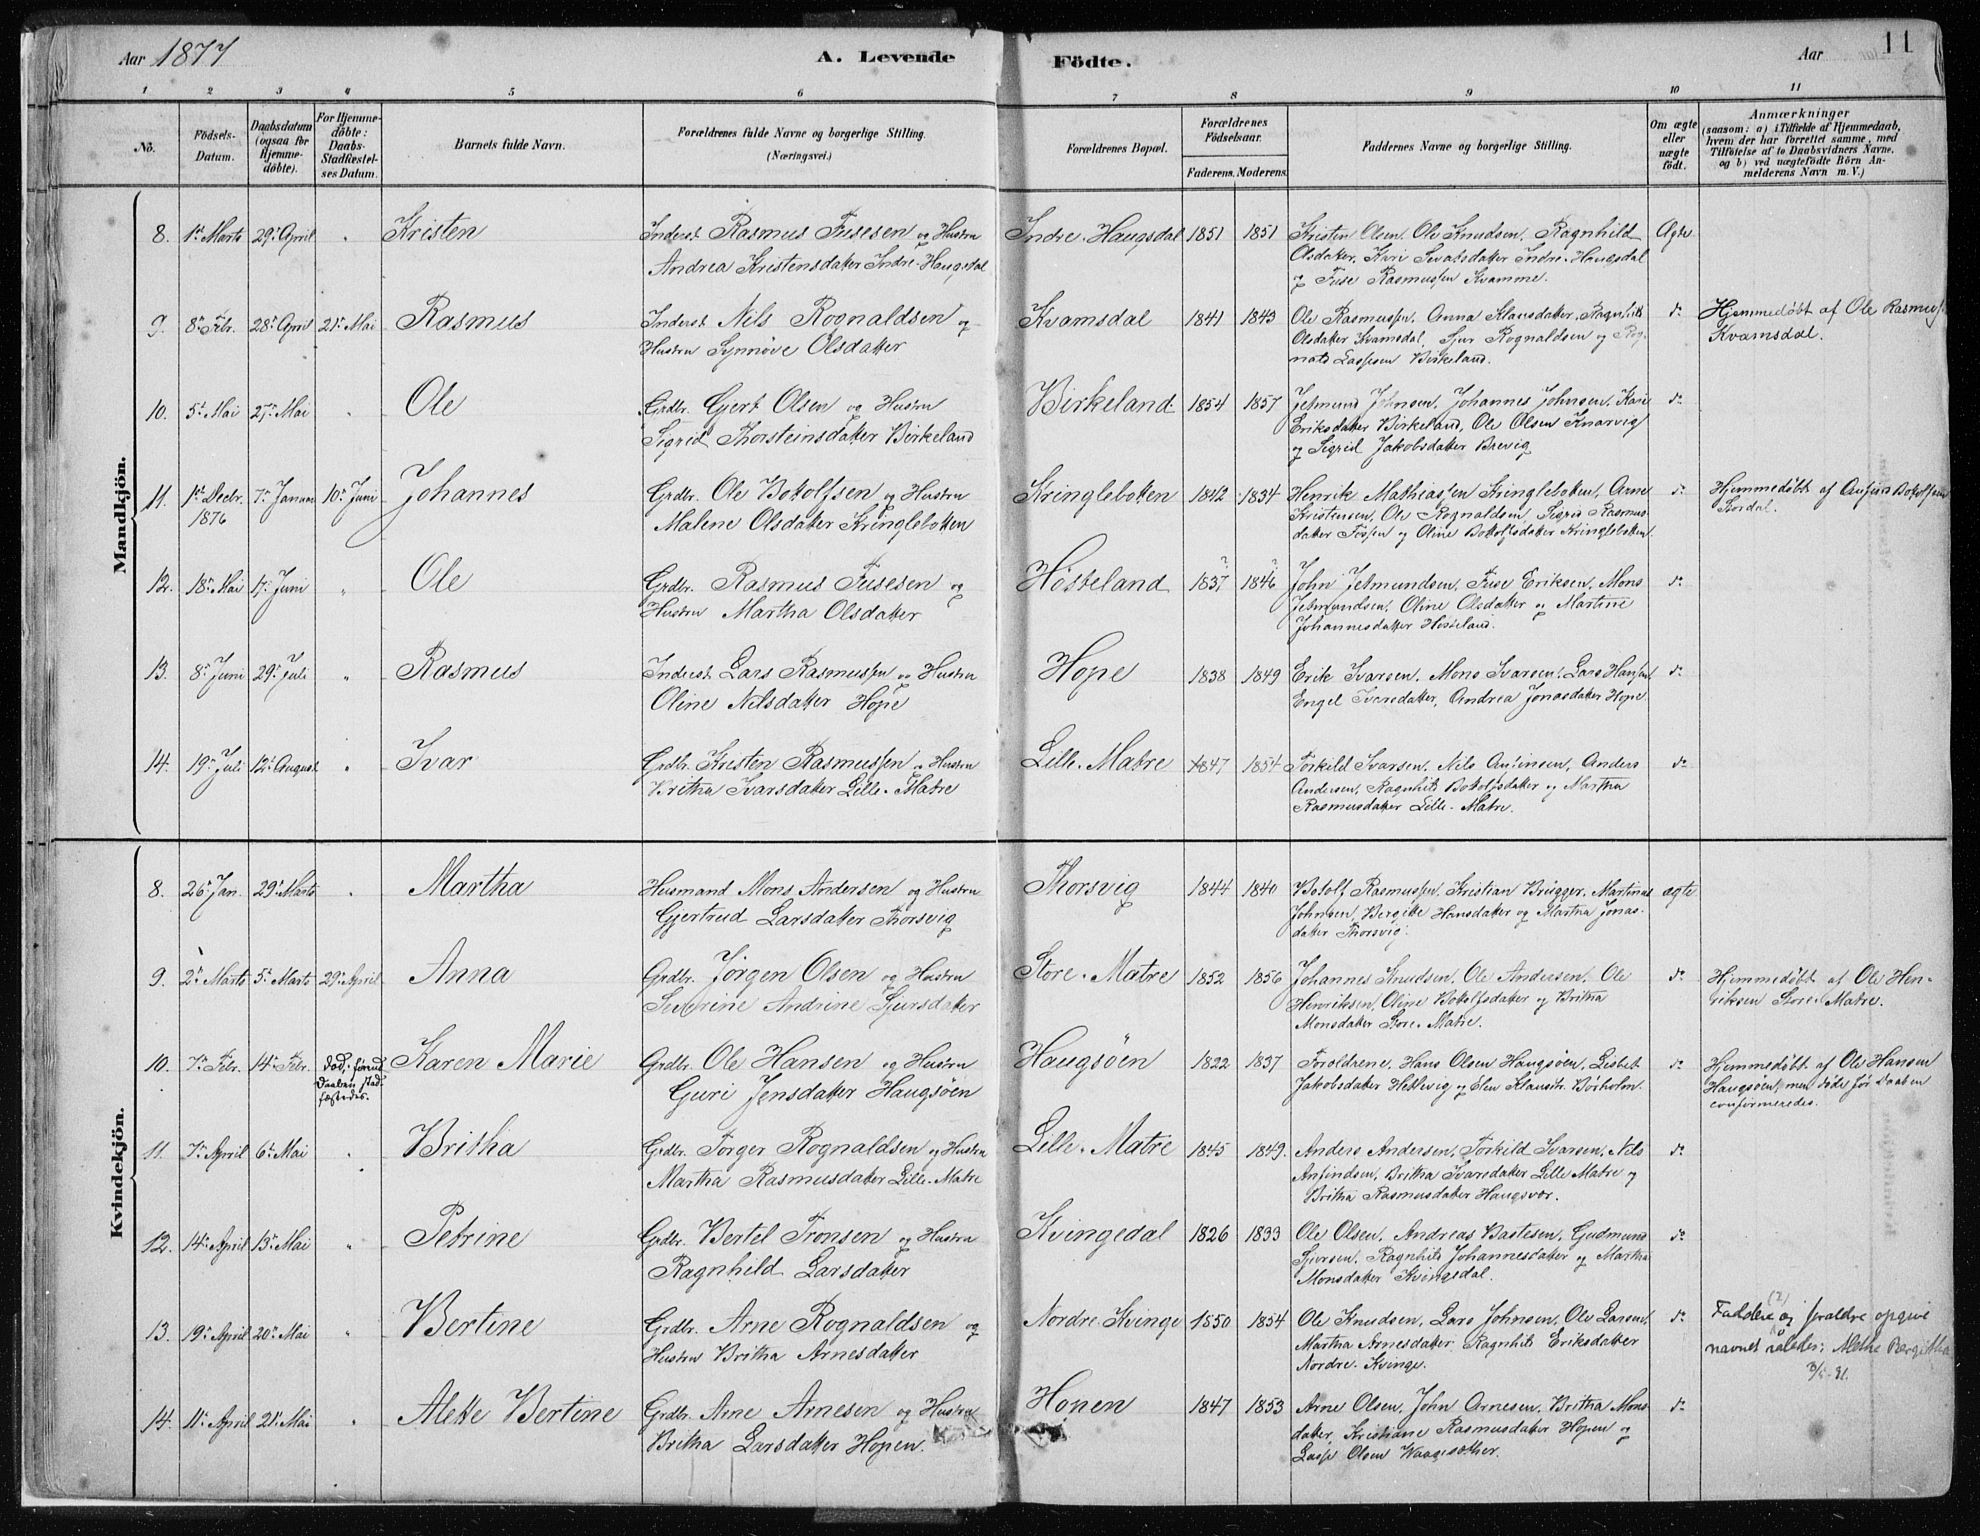 Aar 1877
A. Levende Födte.
Aar
11
1 2 3 4 5 6 7 8 9 10 11
No.
Födsels-Datum.
Daabsdatum (ogsaa for Hjemme-döbte).
For Hjemme-döbte: Daabs-Stadfæstel-ses Datum.
Barnets fulde Navn.
Forældrenes fulde Navne og borgerlige Stilling. (Næringsvei.)
Forældrenes Bopæl.
Forældrenes Födselsaar.
Faderens. Moderens.
Faddernes Navne og borgerlige Stilling.
Om ægte eller uægte födt.
Anmærkninger
(saasom: a) i Tilfælde af Hjemmedaab, hvem der har forrettet samme, med Tilföielse af to Daabsvidners Navne, og b) ved uægtefödte Börn An-melderens Navn m. V.)
Mandkjön.
8. 1st Marts 29. April " Kristen
Inderst Rasmus Fusesen og Hustru
Andrea Kristensdatter Indre-Haugsdal
Indre-Haugsdal 1851 1851
Kristen Olsen, Ole Knudsen, Ragnhild
Olsdatter, Kari Ivarsdatter Indre-Haugsdal
og Fuse Rasmussen Kvamme.
Ægte
9. 8. Febr. 28. April 21. Mai Rasmus
Inderst Nils Rognaldsen og
Hustru Synnöve Olsdatter
Kvamsdal 1841 1843
Ole Rasmussen, Anna Klausdatter, Ragnhild
Olsdatter Kvamsdal, Sjur Rognaldsen og
Lassesen Birkeland.
do
Hjemmedøbt af Ole Rasmus
Kvamsdal.
10. 5. Mai 27. Mai " Ole
Grdbr. Gjert Olsen og Hustru
Sigrid Thorsteinsdatter Birkeland
Birkeland 1854 1857
Jetmund Johnsen, Johannes Johnsen, Kari
Eriksdatter Birkeland, Ole Olsen Knarvig
og Sigrid Jakobsdatter Brevig
do
11. 1st Decbr. 1876 7. Januar 10. Juni Johannes
Grdbr. Ole Botolfsen og Hustru
Malene Olsdatter Kringlebotten
Kringleboten 1842 1834
Henrik Mathiassen Kringleboten, Arne
Kristensen, Ole Rognaldsen, Sigrid Rasmus-
datter Fossen og Oline Botolfsdatter Kringlebotten
do
Hjemmedøbt af Anfind Botolfsen
Stordal.
12. 18. Mai 17. Juni " Ole
Grdbr. Rasmus Fusesen og
Hustru Martha Olsdatter
Hösteland 1837? 1846?
John Jetmundsen, Fuse Eriksen, Mons
Jetmundsen, Oline Olsdatter og Martine
Johannesdatter Hösteland.
do
13. 8. Juni 29. Juli " Rasmus
Inderst Lars Rasmussen og Hustru
Oline Nilsdatter Hope
Hope 1838 1849
Erik Ivarsen, Mons Ivarsen, Lars Hansen
Engel Ivarsdatter, Andrea Jonasdatter Hope
do
14. 19. Juli 12. August " Ivar
Grdbr. Kristen Rasmussen og Hustru
Britha Ivarsdatter Lille-Matre
Lille-Matre 1847 1854
Torkild Ivarsen, Nils Anfinsen, Anders
Andersen, Ragnhild Botolfsdatter og Martha
Rasmusdatter Lille-Matre.
do
Kvindekjön.
8. 26. Jan. 29. Marts " Martha
Husmand Mons Andersen og Hustru
Gjertrud Larsdatter Thorsvig
Thorsvig 1844 1840
Botolf Rasmussen, Kristian Brügger, Martinus
Johnsen, Bergitte Hansdatter og Martha Jonas-
datter Thorsvig.
ægte
9. 2. Marts 5. Marts 29. April Anna
Grdbr. Jörgen Olsen og Hustru
Severine Andrine Sjursdatter
Store-Matre 1852 1856
Johannes Knudsen, Ole Andersen, Ole
Henriksen, Oline Botolfsdatter og Britha
Monsdatter Store-Matre.
do
Hjemmedøbt af Ole Hen-
riksen Store-Matre.
10. 7. Febr. 14. Febr. död, förend Daaben stad-fæstedes. Karen Marie
Grdbr. Ole Hansen og Hustru
Guri Jensdatter Haugsöen
Haugsöen 1822 1837
Foroldrene, Hans Olsen Haugsöen, Lisbet
Jakobsdatter Heblevig og Elen Klausdtr. Borholm.
do
Hjemmedøbt af Ole Hansen
Haugsöen, men döde för Daaben
conformeredes.
11. 7. April 6. Mai " Britha
Grdbr. Torger Rognaldsen og Hustru
Martha Rasmusdatter Lille-Matre
Lille-Matre 1845 1849.
Anders Andersen, Torkild Ivarsen, Nils
Anfindsen, Britha Ivarsdatter Lille Matre og
Britha Rasmusdatter Haugsvær.
do
12. 14. April 13. Mai " Petrine
Grdbr. Bertel Tronsen og Hustru
Ragnhild Larsdatter
Kvingedal 1826 1833
Ole Olsen, Andreas Bastesen, Gudmund
Sjursen, Ragnhild Johannesdatter og Martha
Monsdatter Kvingedal.
do
13. 19. April 20. Mai " Bertine
Grdbr. Arne Rognaldsen og
Hustru Britha Arnesdatter
Nordre-Kvinge 1850 1854
Ole Knudsen, Lars Johnsen, Ole Larsen,
Martha Arnesdatter, Ragnhild Eriksdatter
Nordre-Kvinge.
do
Faddere (2) og foraldre opgive
navnet således: Alethe Bergittha
3/5-31.
14. 11. April 21. Mai " Alette Bertine
Grdbr. Arne Arnesen og Hustru
Britha Larsdatter Hopen.
Hopen 1847 1853
Arne Olsen, John Arnesen, Britha Mons-
datter, Kristiane Rasmusdatter Hopen og
Lasse Olsen Waagesæther.
do